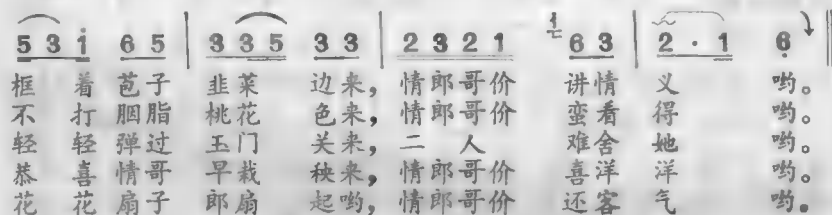 5 3 i 6 5 3 3 5 3 3 2 3 2 1 1 6 3 2 · 1 6
框着苞子韭菜边来，情郎哥价讲情义哟。
不打胭脂桃花色来，情郎哥价蛮看得哟。
轻轻弹过玉门关来，二人难舍她哟。
恭喜情哥早栽秧来，情郎哥价喜洋洋哟。
花花扇子郎扇起哟，情郎哥价还客气哟。